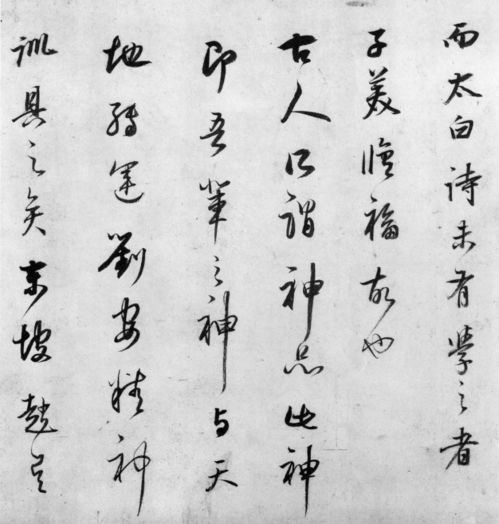 而太白诗未有学之者
子美膾福故也
古人所謂神品此神
即吾輩之神与天
地轉運劉安精神
訓具之矣東坡赴